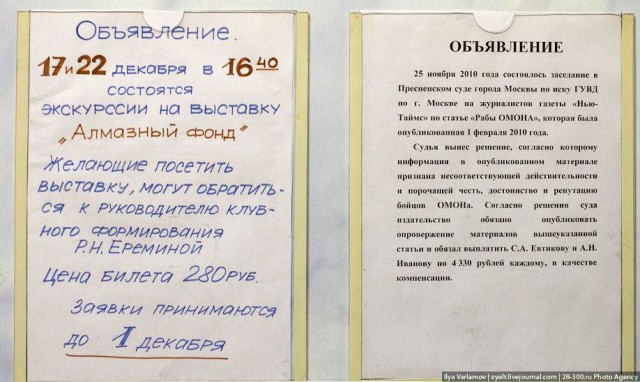 Объявление.
17 и 22 декабря в 16 40
состоятся
экскурссии на выставку
„Алмазный фонд"
Желающие посетить
выставку, могут обратить-
ся к руководителю клуб-
ного формирования
Р.Н. Ереминой
Цена билета 280 руб.
Заявки принимаются
до 1 декабря
ОБЪЯВЛЕНИЕ
25 ноября 2010 года состоялось заседание в
Пресненском суде города Москвы по иску ГУВД
по г. Москве на журналистов газеты «Нью-
Таймс» по статье «Рабы ОМОНА», которая была
опубликованная 1 февраля 2010 года.
Судья вынес решение, согласно которому
информация в опубликованном материале
признана несоответствующей действительности
и порочащей честь, достоинство и репутацию
бойцов ОМОНа. Согласно решения суда
издательство обязано опубликовать
опровержение материалов вышеуказанной
статьи и обязал выплатить С.А. Евтикову и А.Н.
Иванову по 4 330 рублей каждому, в качестве
компенсации.
Ilya Varlamov | zyalt.livejournal.com | 28-300.ru Photo Agency